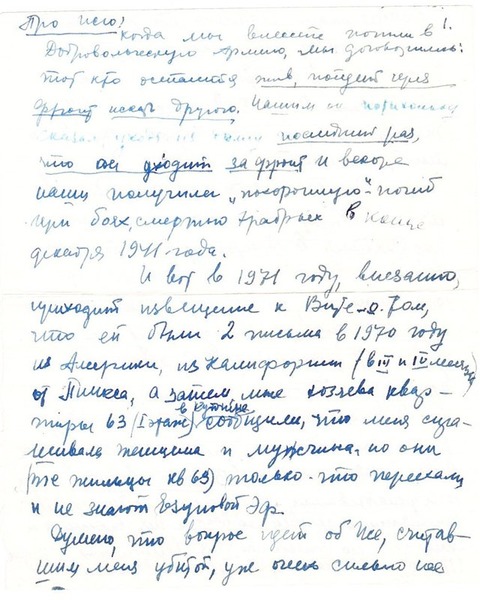 Про него! 1.
Когда мы вместе пошли в
Добровольческую Армию, мы договорились:
тот кто останется жив, пойдет через
фронт искать другого. Нашим он потихоньку
сказал, последний раз,
что он уходит за фронт и вскоре
наши получили „похоронную"- погиб
при боях, смертью храбрых в конце
декабря 1941 года.
И вот в 1971 году, внезапно,
приходит извещение к Вите
что ей были 2 письма в 1970 году
из Америки, из Калифорнии (в III и IV месяце)
от а затем мне хозяева квар-
тиры 63 (I этаж) в сообщили, что меня спра-
шивала женщина и мужчина, но они
(те жильцы кв 63) только-что переехали
и не знают Эф.
Думаю, что вопрос идет об считав-
шим меня убитой, уже очень сильно нас